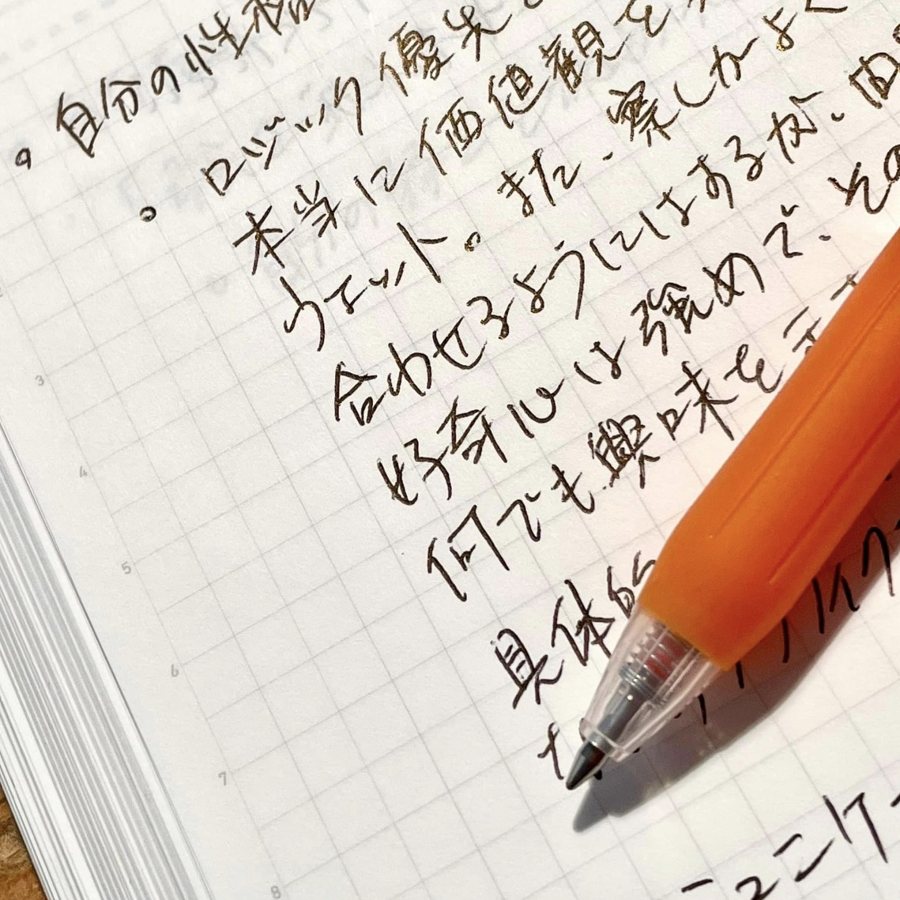 自分の性格
ロジック優先
本当に価値観を
ウェット。また、察しがよく
合わせるようにはするが、
好奇心は強めで、その
何でも興味を示
具体的
ュニケー
3
4
5
6
7
8